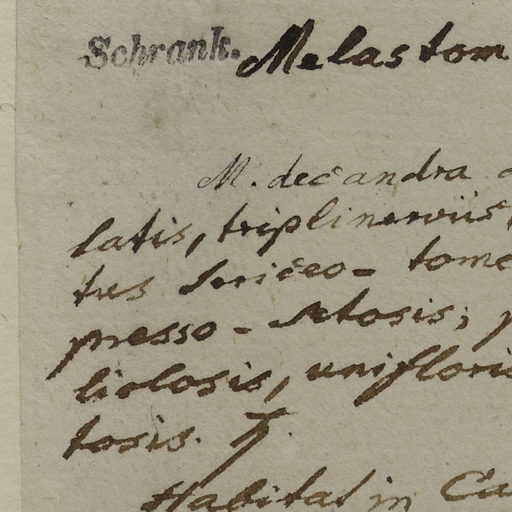 Schrank. Melastom
M. decandra
latis, triplinerviis,
tus sericeo- tome
presso-setosis; p
liolosis, unifloris
tosis. ♄.
Habitat in Ca